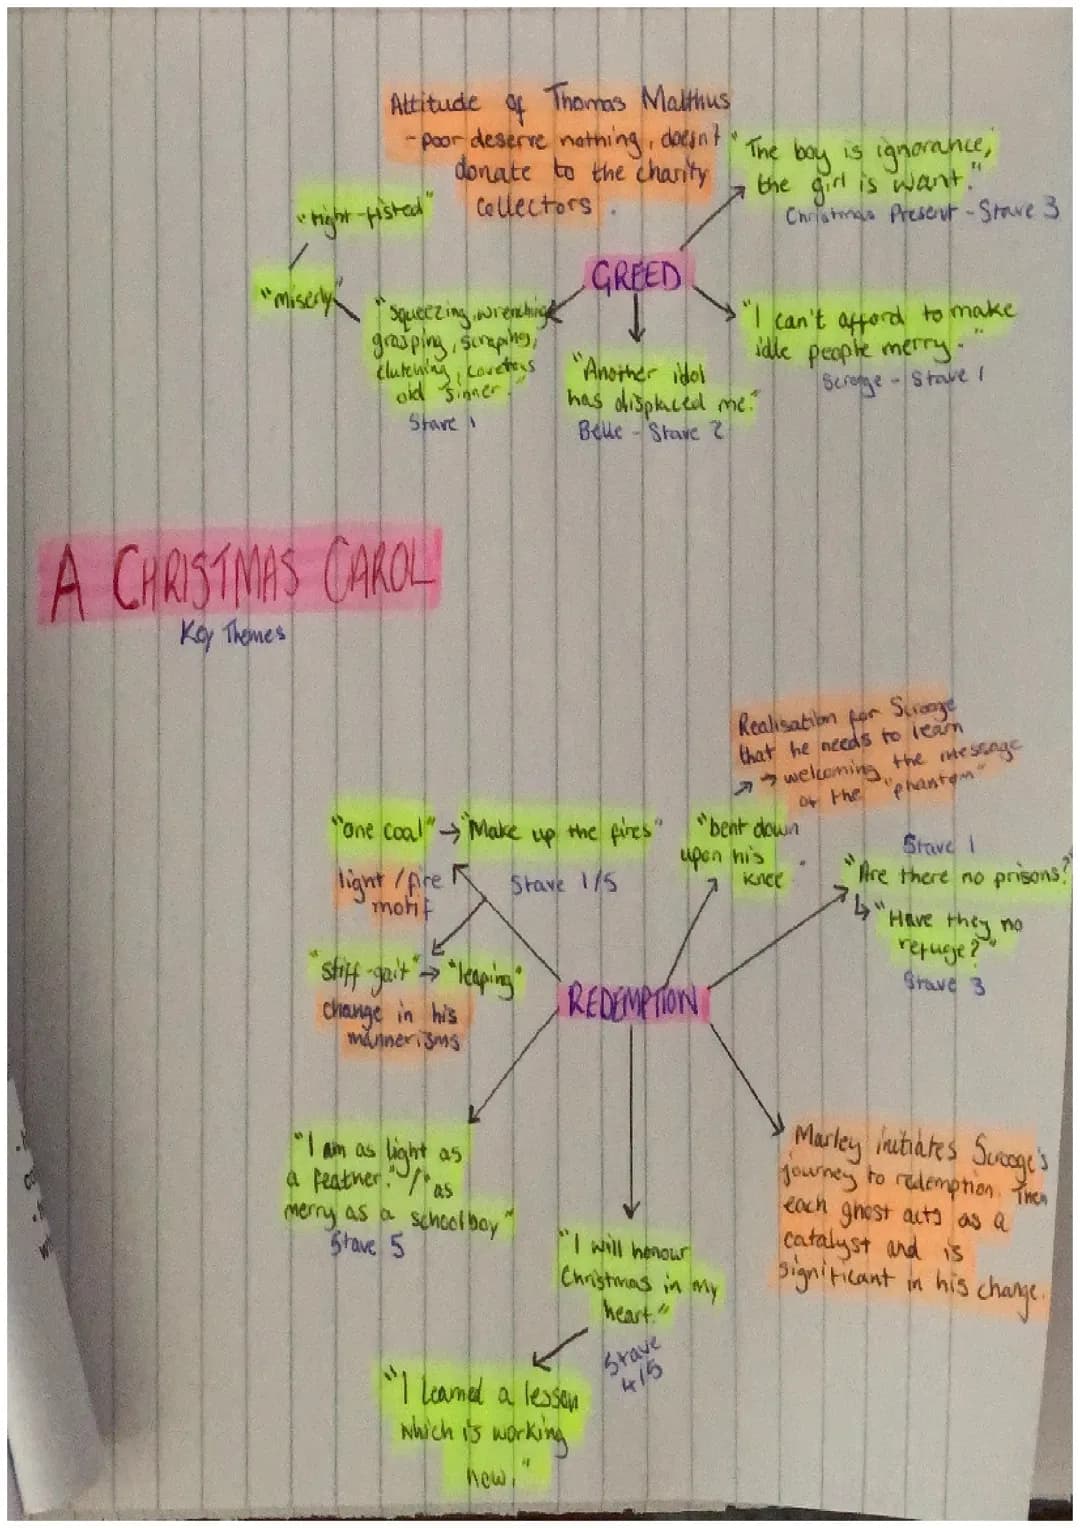 Attitude of Thomas Malthus
- poor deserve nothing, doesn't
donate to the charity
collectors.
"The boy is ignorance,
the girl is want."
Christmas Present - Stave 3
"tight-fisted"
"miserly"
GREED
"Squeezing, wrenching
grasping, scraping,
clutching, covetous
old sinner."
Stave 1
"Another idol
has displaced me."
Belle - Stave 2
"I can't afford to make
idle people merry."
Scrooge - Stave 1
A CHRISTMAS CAROL
Key Themes
Realisation for Scrooge
that he needs to learn
→ welcoming the message
of the "phantom"
"one coal" → "Make up the fires"
light / fire
motif
Stave 1/5
"bent down
upon his
knee"
Stave 1
"Are there no prisons?"
↳ "Have they no
refuge?"
Stave 3
"stiff-gait" → "leaping"
change in his
mannerisms
REDEMPTION
"I am as light as
a feather." / "as
merry as a schoolboy"
Stave 5
"I will honour
Christmas in my
heart."
Stave
4/5
"I learned a lesson
which is working
now."
Marley initiates Scrooge's
journey to redemption. Then
each ghost acts as a
catalyst and is
significant in his change.